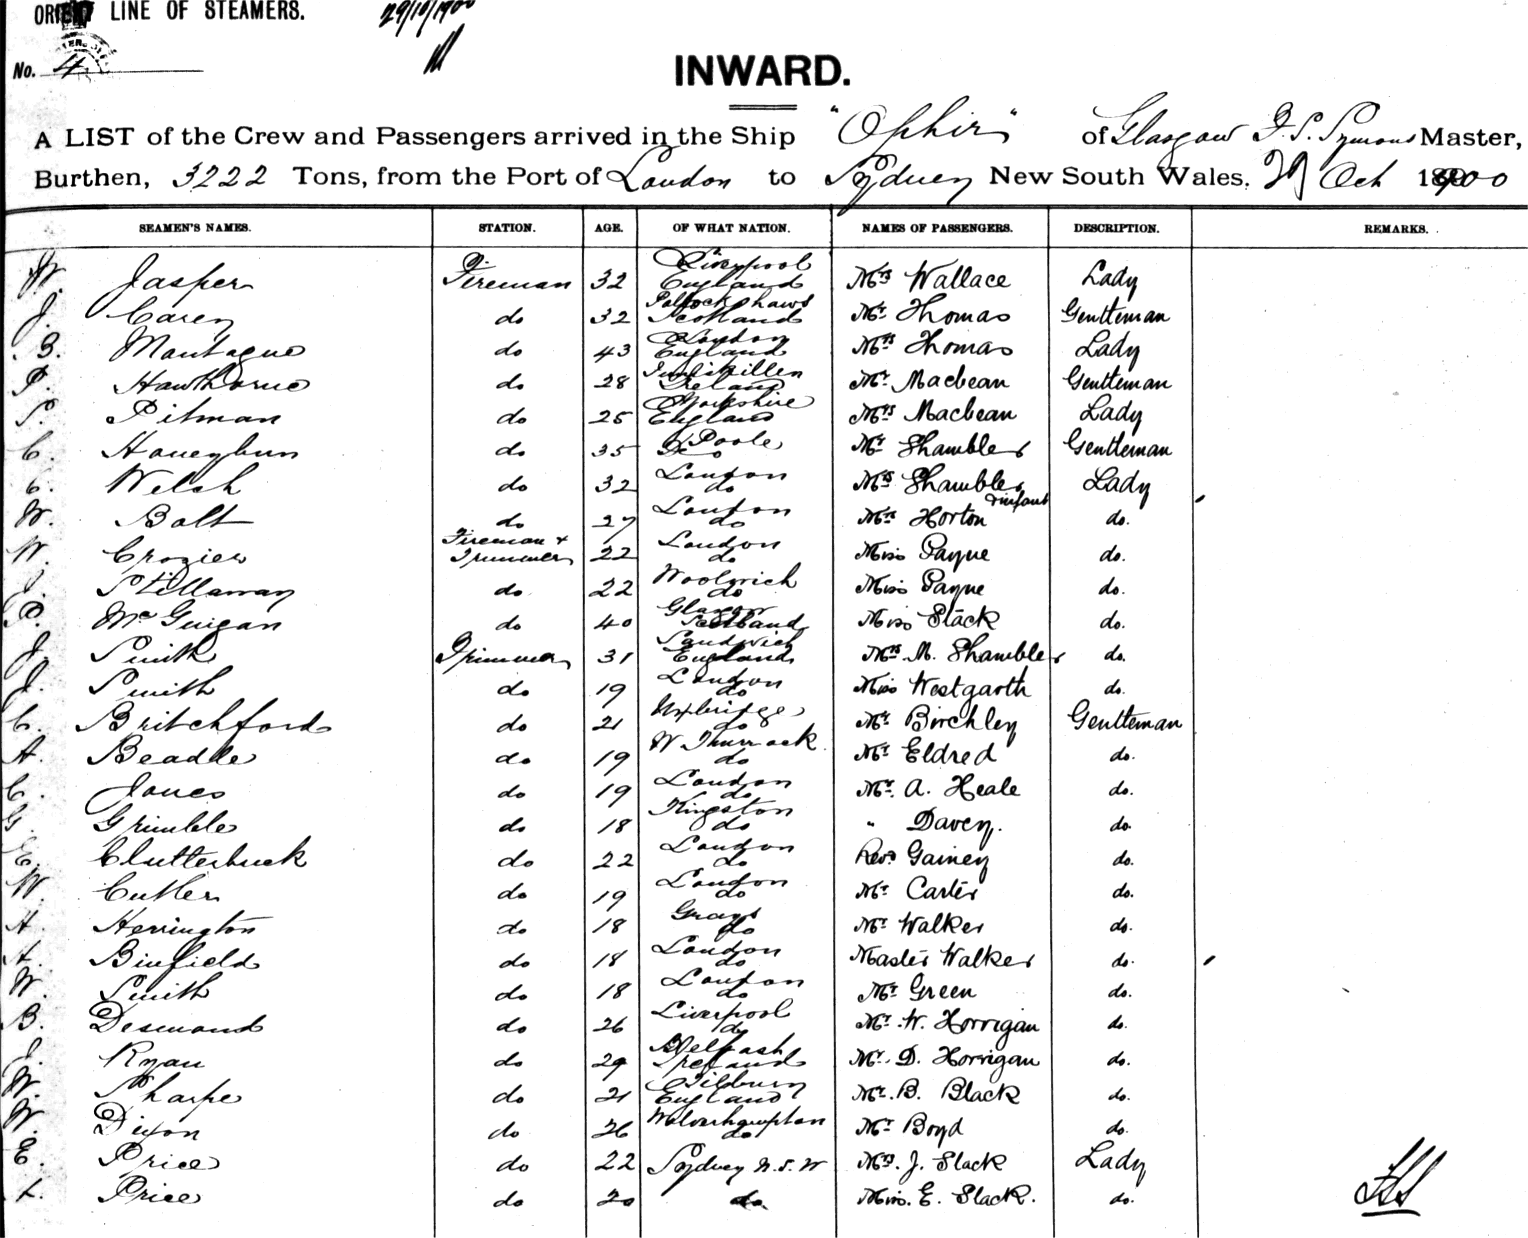 ORIENT LINE OF STEAMERS.
29/10/1900
No. 4
INWARD.
A LIST of the Crew and Passengers arrived in the Ship "Ophir" of Glasgow F. S. Symons Master,
Burthen, 3222 Tons, from the Port of London to Sydney New South Wales, 29 Oct 1900
SEAMEN'S NAMES. STATION. AGE. OF WHAT NATION. NAMES OF PASSENGERS. DESCRIPTION. REMARKS.
W. Jasper Fireman 32 Liverpool England Mrs Wallace Lady
J. Carey do 32 Pollockshaws Scotland Mr. Thomas Gentleman
B. Montague do 43 London England Mrs Thomas Lady
P. Hawthorne do 28 Inniskillen Ireland Mr. Macbean Gentleman
S. Pitman do 25 Yorkshire England Mrs Macbean Lady
C. Honeybun do 35 Poole Do Mr Shambler Gentleman
C. Welsh do 32 London do Mrs Shambler & infant Lady
W. Balt do 27 London do Mrs Horton do.
W. Crozier Fireman & Trimmer 22 London do Miss Payne do.
J. Stillaway do 22 Woolwich do Miss Payne do.
P. McGuigan do 40 Glasgow Scotland Miss Stack do.
J. Smith Trimmer 31 Sandwich England Mrs. M. Shambler do.
J. Smith do 19 London do Miss Westgarth do.
C. Britchford do 21 Uxbridge do Mr Birchley Gentleman
A. Beadle do 19 W Thurrock do Mr. Eldred do.
C. Jones do 19 London do Mr. A. Heale do.
G. Grimble do 18 Kingston do " Davey. do
E. Clutterbuck do 22 London do Revd Gainey do.
W. Cutler do 19 London do Mr. Carter do.
A. Herrington do 18 Grays do Mr Walker do.
A. Binfield do 18 London do Master Walker do.
W. Smith do 18 London do Mr Green do.
B. Desmond do 26 Liverpool do Mr. W. Horrigan do.
J. Ryan do 29 Belfast Ireland Mr. D. Horrigan do.
W. Sharpe do 21 Tilbury England Mr. B. Black do.
W. Dixon do 26 Wolverhampton do Mr Boyd do.
E. Price do 22 Sydney N.S.W Mrs. J. Slack Lady
L. Price do 20 do. Miss. E. Slack. do.